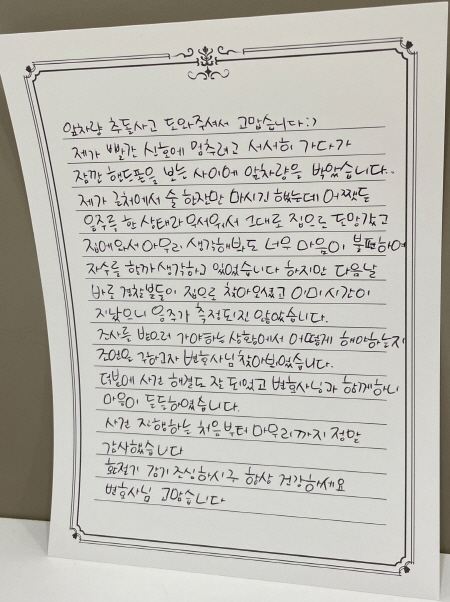 앞차량 추돌사고 도와주셔서 고맙습니다:)
제가 빨간 신호에 멈추려고 서서히 가다가
잠깐 핸드폰을 보는 사이에 앞차량을 박았습니다..
제가 근처에서 술 한잔만 마시지 했는데 어쨌든
음주를 한 상태라 무서워서 그대로 집으로 도망갔고
집에와서 아무리 생각해봐도 너무 마음이 불편하여
자수를 할까 생각하고 있었습니다 하지만 다음날
바로 경찰분들이 집으로 찾아오셨고 이미 시간이
지났으니 음주가 측정되진 않았습니다.
조사를 받으러 가야하는 상황에서 어떻게 해야하는지
조언을 구하고자 변호사님 찾아뵈었습니다.
덕분에 사건 해결도 잘 되었고 변호사님과 함께하니
마음이 든든하였습니다.
사건 진행하는 처음부터 마무리까지 정말
감사했습니다
환절기 감기 조심하시구 항상 건강하세요
변호사님 고맙습니다